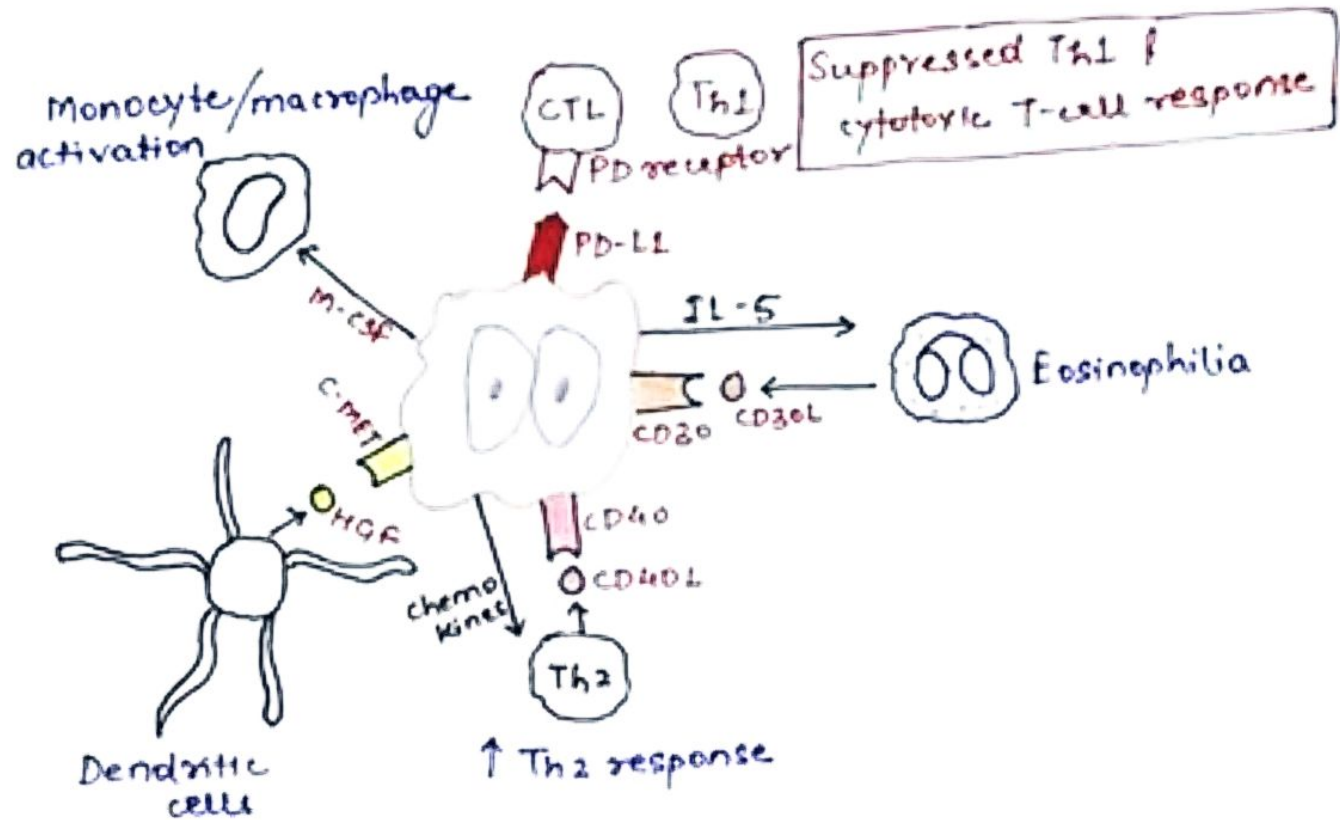 Monocyte/macrophage
activation
CTL
Th1
Suppressed Th1 &
cytotoxic T-cell response
PD receptor
PD-L1
M-CSF
IL-5
Eosinophilia
CD30
CD30L
C-MET
HGF
CD40
CD40L
chemo
kines
Th2
↑ Th2 response
Dendritic
cells